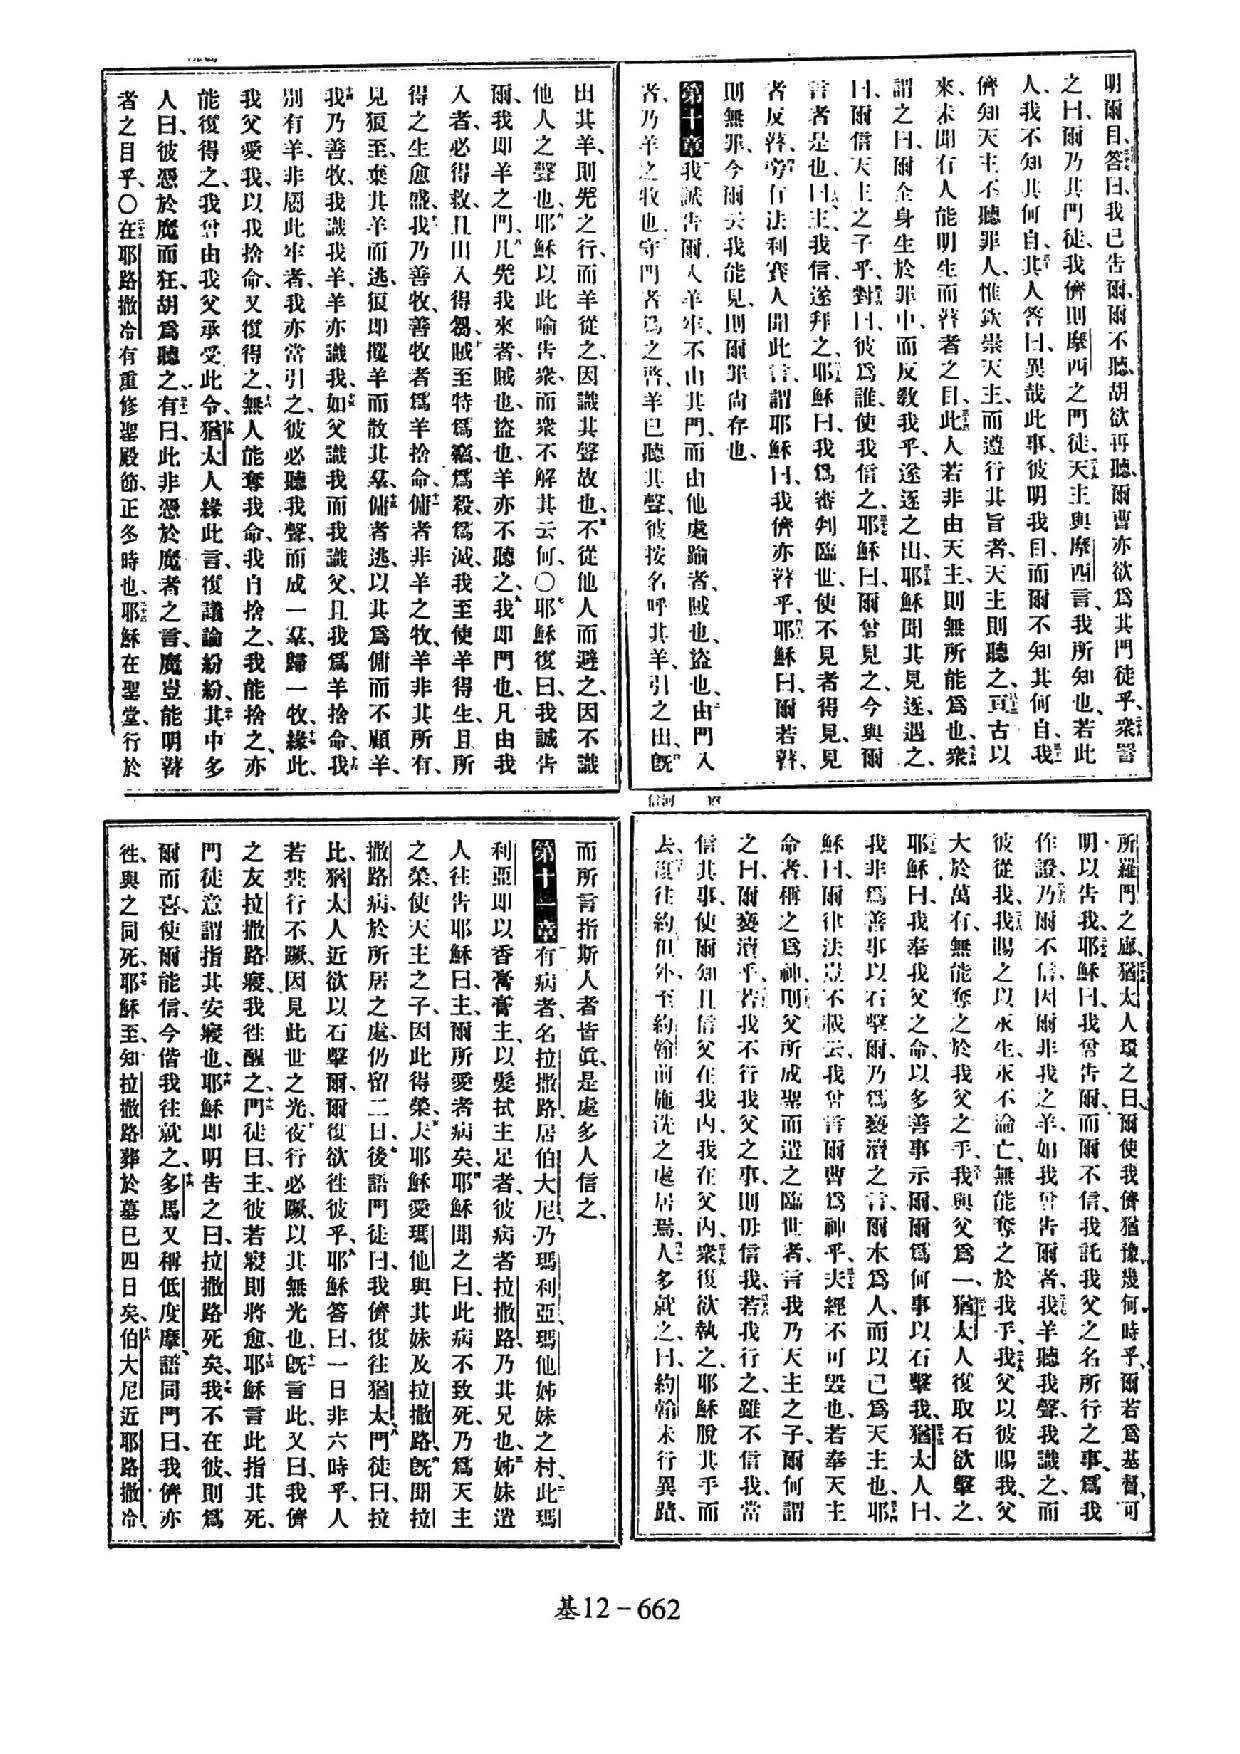 明爾目、答曰、我已告爾、爾不聽、胡欲再聽、爾曹亦欲爲其門徒乎、衆詈
之曰、爾乃其門徒、我儕則摩西之門徒、天主與摩西言、我所知也、若此
人、我不知其何自、其人答曰、異哉此事、彼明我目、而爾不知其何自、我
儕知天主不聽罪人、惟欽崇天主、而遵行其旨者、天主則聽之、亘古以
來、未聞有人能明生而瞽者之目、此人若非由天主、則無所能爲也、衆
謂之曰、爾全身生於罪中、而反教我乎、遂逐之出、耶穌聞其見逐、遇之、
曰、爾信天主之子乎、對曰、彼爲誰、使我信之、耶穌曰、爾曾見之、今與爾
言者是也、曰、主、我信、遂拜之、耶穌曰、我爲審判臨世、使不見者得見、見
者反瞽、旁有法利賽人聞此言、謂耶穌曰、我儕亦瞽乎、耶穌曰、爾若瞽、
則無罪、今爾云我能見、則爾罪尚存也、
第十章 我誠告爾、入羊牢、不由其門、而由他處踰者、賊也、盜也、由門入
者、乃羊之牧也、守門者爲之啓、羊已聽其聲、彼按名呼其羊、引之出、旣
出其羊、則先之行、而羊從之、因識其聲故也、不從他人而避之、因不識
他人之聲也、耶穌以此喻告衆、而衆不解其云何、〇耶穌復曰、我誠告
爾、我即羊之門、凡先我來者、賊也、盜也、羊亦不聽之、我即門也、凡由我
入者必得救、且出入得芻、賊至特爲竊爲殺爲滅、我至使羊得生、且所
得之生愈盛、我乃善牧、善牧者爲羊捨命、傭者非羊之牧、羊非其所有、
見狼至、棄其羊而逃、狼即攫羊而散其羣、傭者逃、以其爲傭而不顧羊、
我乃善牧、我識我羊、羊亦識我、如父識我、而我識父、且我爲羊捨命、我
別有羊、非屬此牢者、我亦當引之、彼必聽我聲、而成一羣、歸一牧、緣此、
我父愛我、以我捨命、又復得之、無人能奪我命、我自捨之、我能捨之、亦
能復得之、我曾由我父承受此令、猶太人緣此言、復議論紛紛、其中多
人曰、彼憑於魔而狂、胡爲聽之、有曰、此非憑於魔者之言、魔豈能明瞽
者之目乎、〇在耶路撒冷有重修聖殿節、正冬時也、耶穌在聖堂、行於
信河
所羅門之廊、猶太人環之曰、爾使我儕猶豫幾何時乎、爾若爲基督、可
明以告我、耶穌曰、我曾告爾、而爾不信、我託我父之名所行之事、爲我
作證、乃爾不信、因爾非我之羊、如我曾告爾者、我羊聽我聲、我識之、而
彼從我、我賜之以永生、永不論亡、無能奪之於我手、我父以彼賜我、父
大於萬有、無能奪之於我父之手、我與父爲一、猶太人復取石欲擊之、
耶穌曰、我奉我父之命、以多善事示爾、爾爲何事以石擊我、猶太人曰、
我非爲善事以石擊爾、乃爲褻瀆之言、爾本爲人、而以己爲天主也、耶
穌曰、爾律法豈不載云、我曾言爾曹爲神乎、夫經不可毀也、若奉天主
命者、稱之爲神、則父所成聖而遣之臨世者、言我乃天主之子、爾何謂
之曰、爾褻瀆乎、若我不行我父之事、則毋信我、若我行之、雖不信我、當
信其事、使爾知且信父在我內、我在父內、衆復欲執之、耶穌脫其手而
去、復往約但外、至約翰前施洗之處居焉、人多就之、曰、約翰未行異蹟、
而所言指斯人者皆眞、是處多人信之、
第十一章 有病者、名拉撒路、居伯大尼、乃瑪利亞、瑪他姊妹之村、此瑪
利亞即以香膏膏主、以髮拭主足者、彼病者拉撒路、乃其兄也、姊妹遣
人往告耶穌曰、主、爾所愛者病矣、耶穌聞之曰、此病不致死、乃爲天主
之榮、使天主之子因此得榮、夫耶穌愛瑪他與其妹及拉撒路、旣聞拉
撒路病、於所居之處、仍留二日、後語門徒曰、我儕復往猶太、門徒曰、拉
比、猶太人近欲以石擊爾、爾復欲往彼乎、耶穌答曰、一日非六時乎、人
若晝行不蹶、因見此世之光、夜行必蹶、以其無光也、旣言此、又曰、我儕
之友拉撒路寢、我往醒之、門徒曰、主、彼若寢則將愈、耶穌言此指其死、
門徒意謂指其安寢也、耶穌即明告之曰、拉撒路死矣、我不在彼、則爲
爾而喜、使爾能信、今偕我往就之、多馬又稱低度摩、語同門曰、我儕亦
往、與之同死、耶穌至、知拉撒路葬於墓已四日矣、伯大尼近耶路撒冷、
基12-662